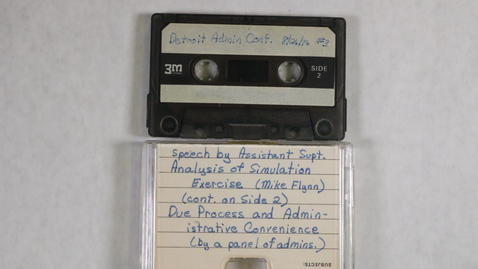 Detroit Admin Conf. #3
3M
SIDE
2
Speech by Assistant Supt.
Analysis of Simulation
Exercise (Mike Flynn)
(cont. on Side 2)
Due Process and Admin-
istrative Convenience
(by a panel of admins.)
SUBJECTS: